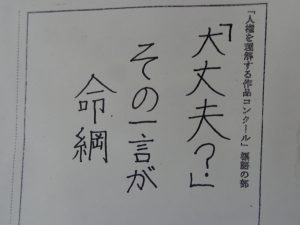 「人権を理解する作品コンクール」標語の部
「大丈夫？」
その一言が
命綱